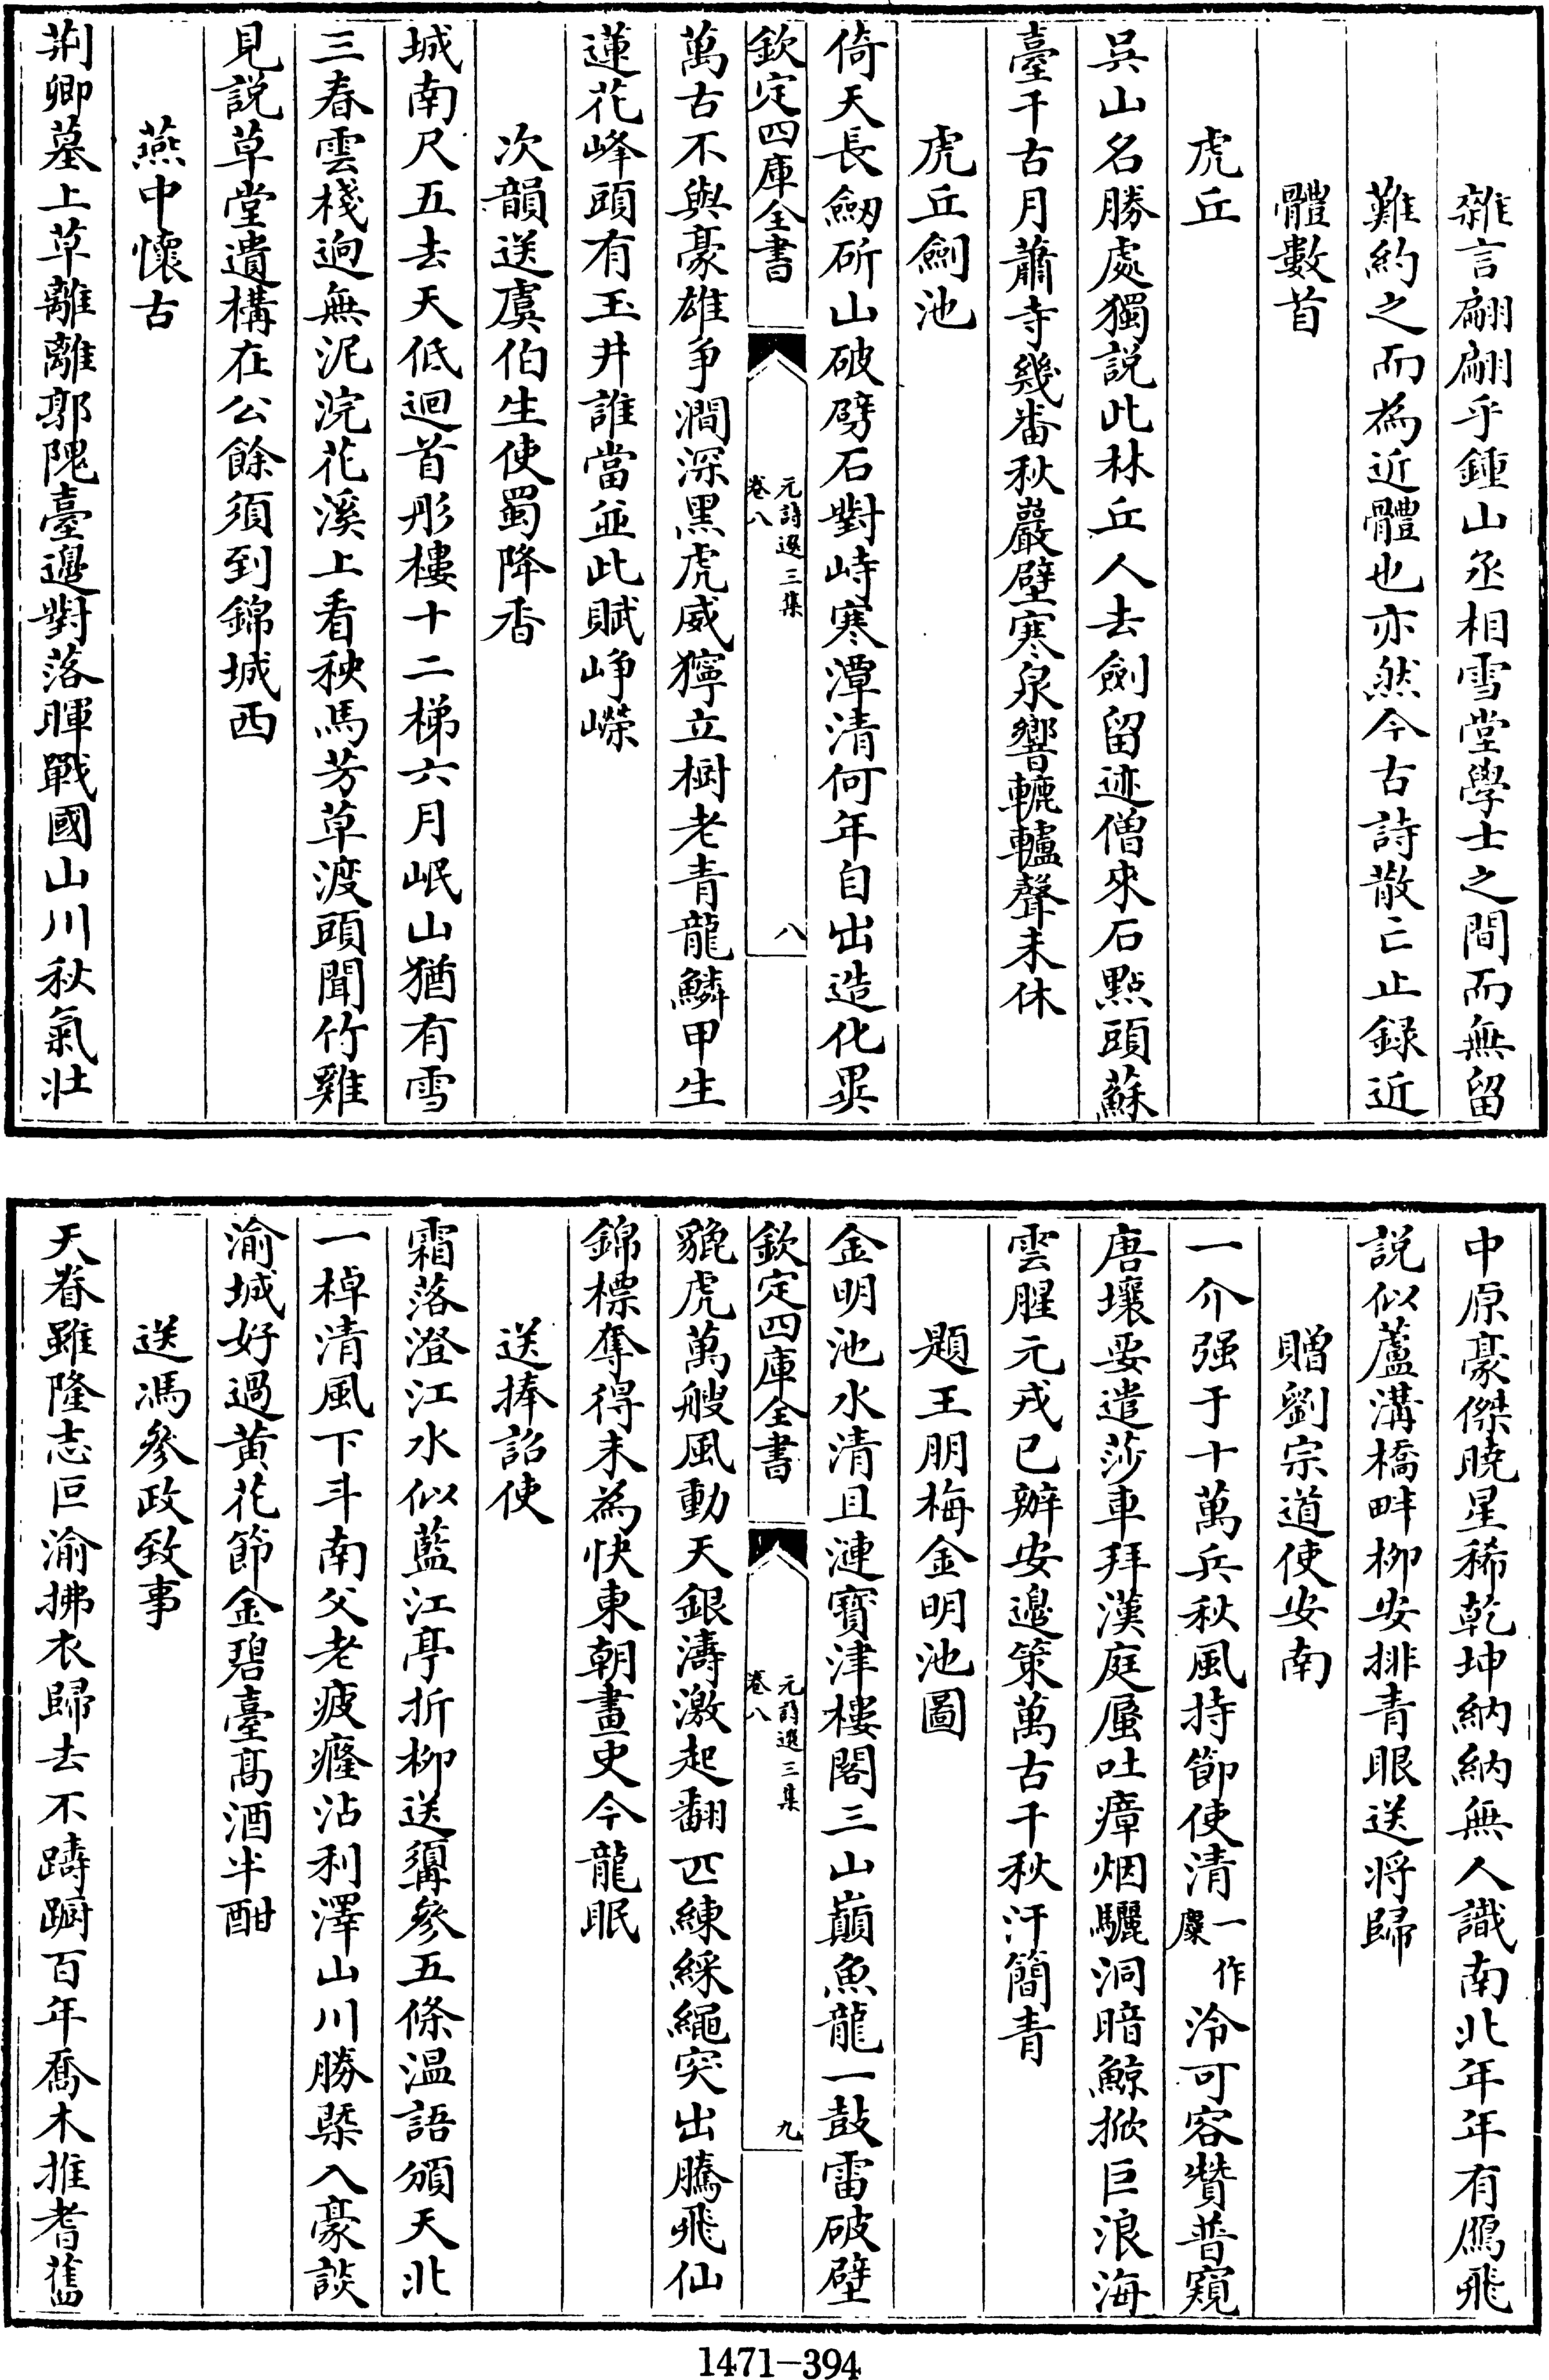 雜言翩翩乎鍾山丞相雪堂學士之間而無留
難約之而為近體也亦然今古詩散亡止録近
體數首
虎丘
吳山名勝處獨説此林丘人去劍留迹僧來石點頭蘇
臺千古月蕭寺幾番秋巖壁寒泉響轆轤聲未休
虎丘劍池
倚天長劒斫山破劈石對峙寒潭清何年自出造化異
欽定四庫全書
元詩選三集
卷八
八
萬古不與豪雄争澗深黑虎威獰立樹老青龍鱗甲生
蓮花峰頭有玉井誰當並此賦崢嶸
次韻送虞伯生使蜀降香
城南尺五去天低迴首彤樓十二梯六月岷山猶有雪
三春雲棧迥無泥浣花溪上看秧馬芳草渡頭聞竹雞
見説草堂遺構在公餘須到錦城西
燕中懷古
荆卿墓上草離離郭隗臺邊對落暉戰國山川秋氣壯
中原豪傑曉星稀乾坤納納無人識南北年年有鴈飛
説似蘆溝橋畔柳安排青眼送將歸
贈劉宗道使安南
一介强于十萬兵秋風持節使清一作麋泠可容贊普窺
唐壤要遣莎車拜漢庭蜃吐瘴烟驪洞暗鯨掀巨浪海
雲腥元戎已辦安邊策萬古千秋汗簡青
題王朋梅金明池圖
金明池水清且漣寶津樓閣三山巔魚龍一鼓雷破壁
欽定四庫全書
元詩選三集
卷八
九
貔虎萬艘風動天銀濤激起翻匹練綵繩突出騰飛仙
錦標奪得未為快東朝畫史今龍眠
送捧詔使
霜落澄江水似藍江亭折柳送驂五條温語頒天北
一棹清風下斗南父老疲癃沾利澤山川勝槩入豪談
渝城好過黄花節金碧臺髙酒半酣
送馮參政致事
天眷雖隆志叵渝拂衣歸去不躊躕百年喬木推耆舊
1471-394